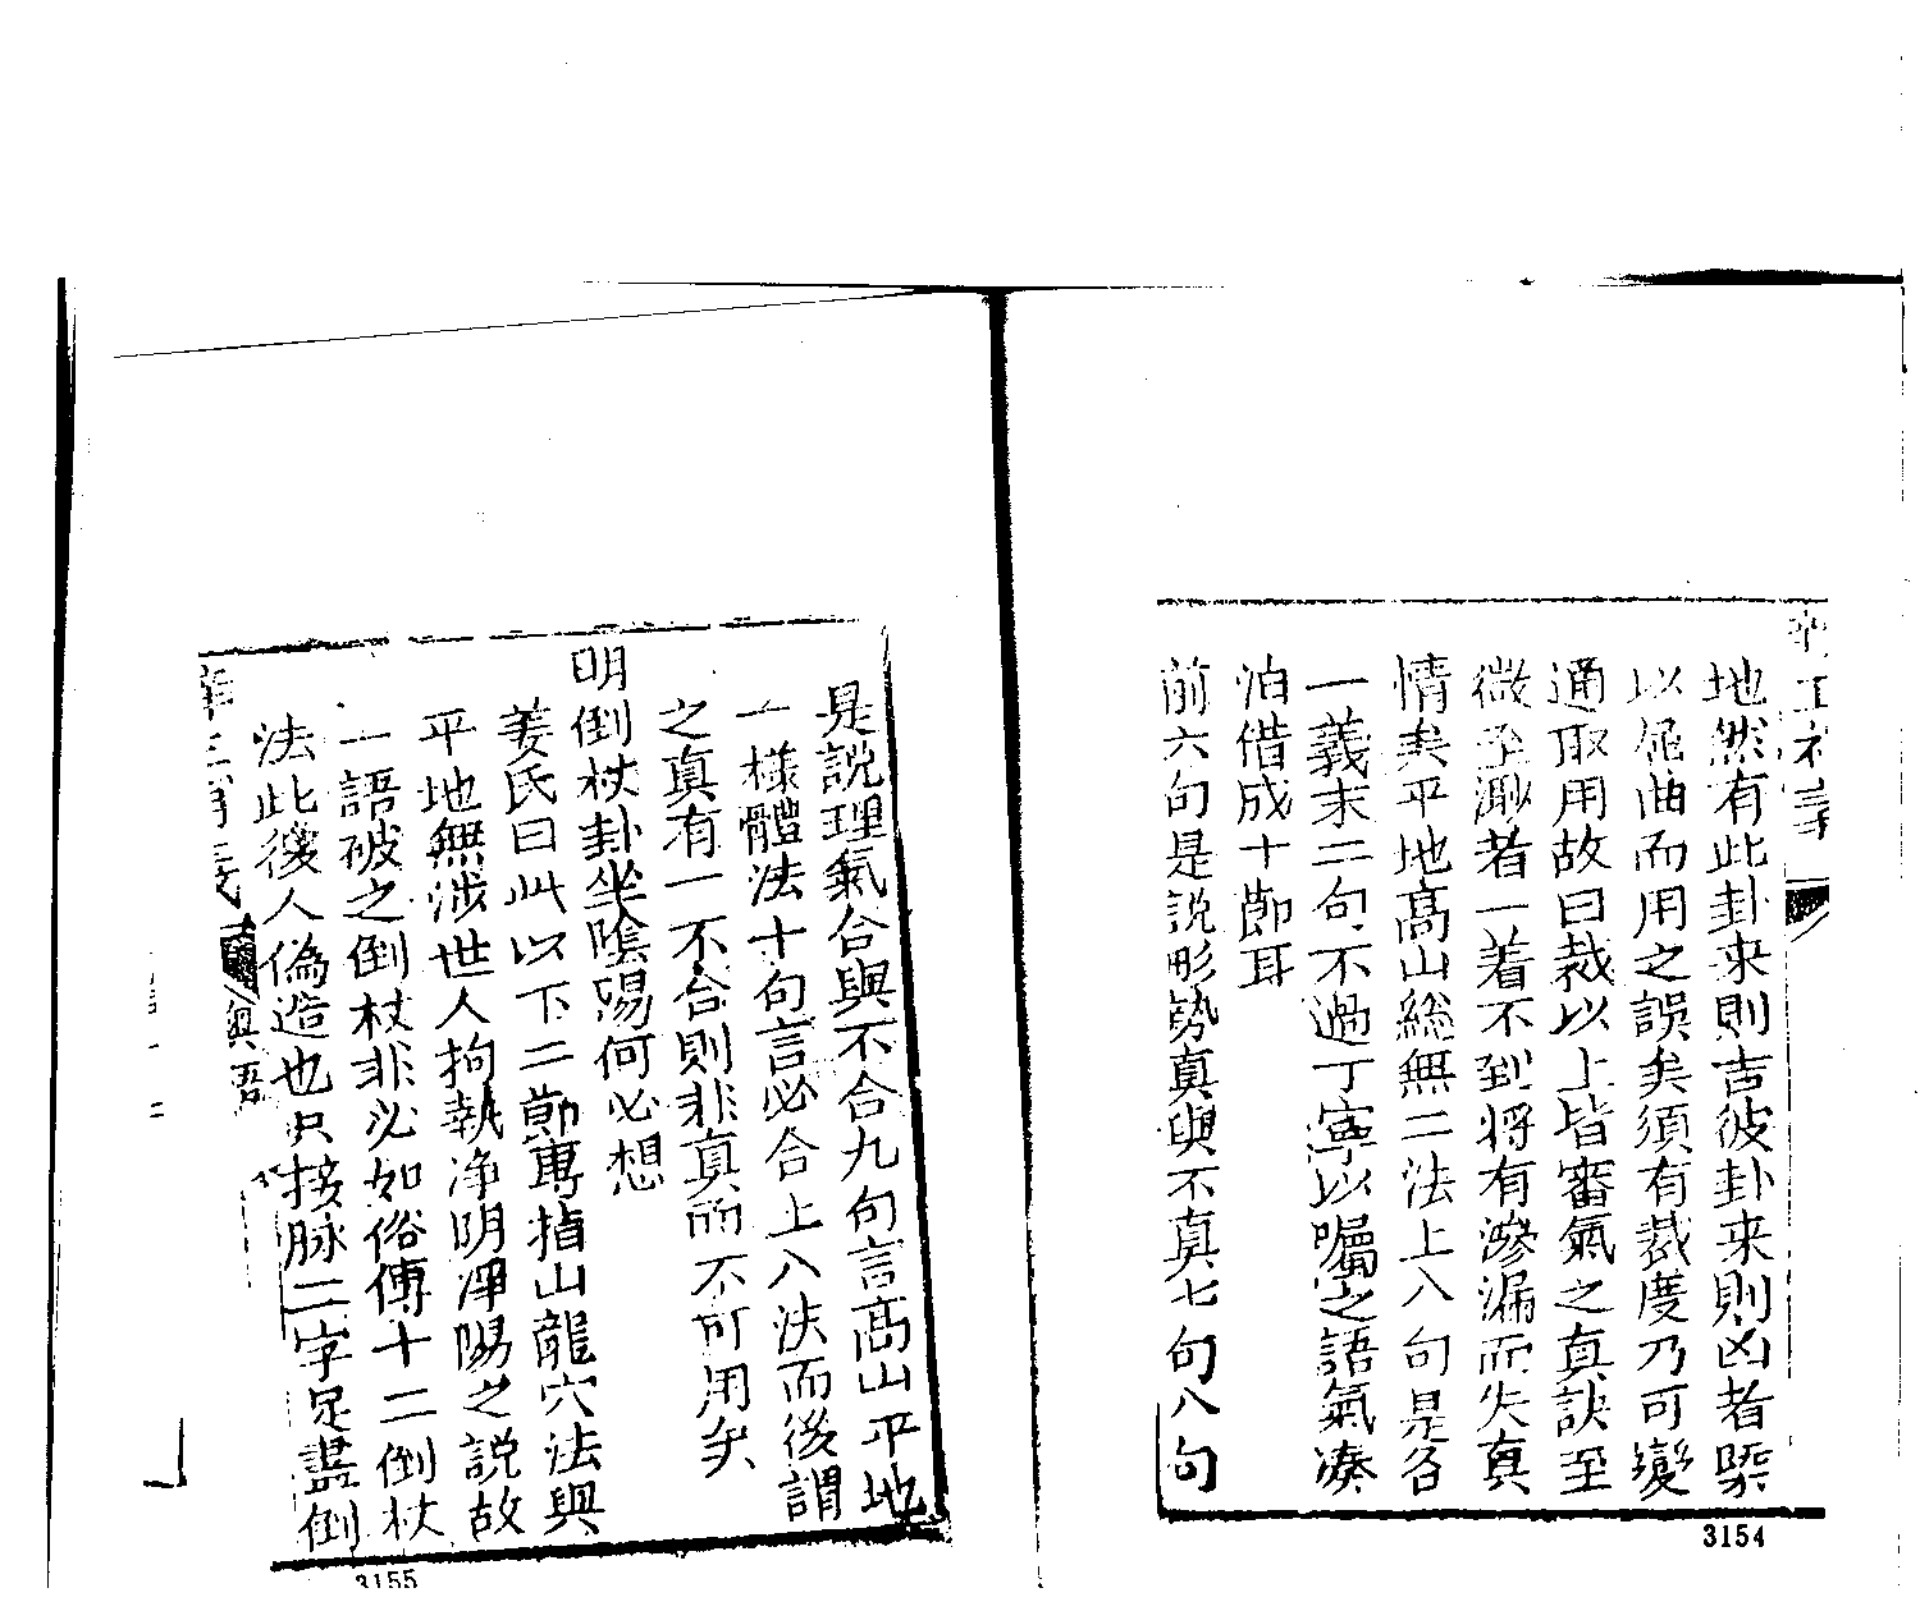 地然有此卦来則吉彼卦来則凶者槩
以屈曲而用之誤矣須有裁度乃可變
通取用故曰裁以上皆審氣之真訣至
微至渺者一着不到将有滲漏而失真
情矣平地高山総無二法上八句是各
一義末二句不過丁寧以囑之語氣湊
泊借成十節耳
前六句是説形势真與不真七句八句
3154
是説理氣合與不合九句言高山平地
一様體法十句言必合上八法而後謂
之真有一不合則非真而不可用矣
明倒杖卦坐陰陽何必想
姜氏曰此以下二節專指山龍穴法與
平地無涉世人拘執净阴净陽之説故
一語破之倒杖非必如俗傳十二倒杖
法此後人偽造也只接脉二字足盡倒
奥語
3155